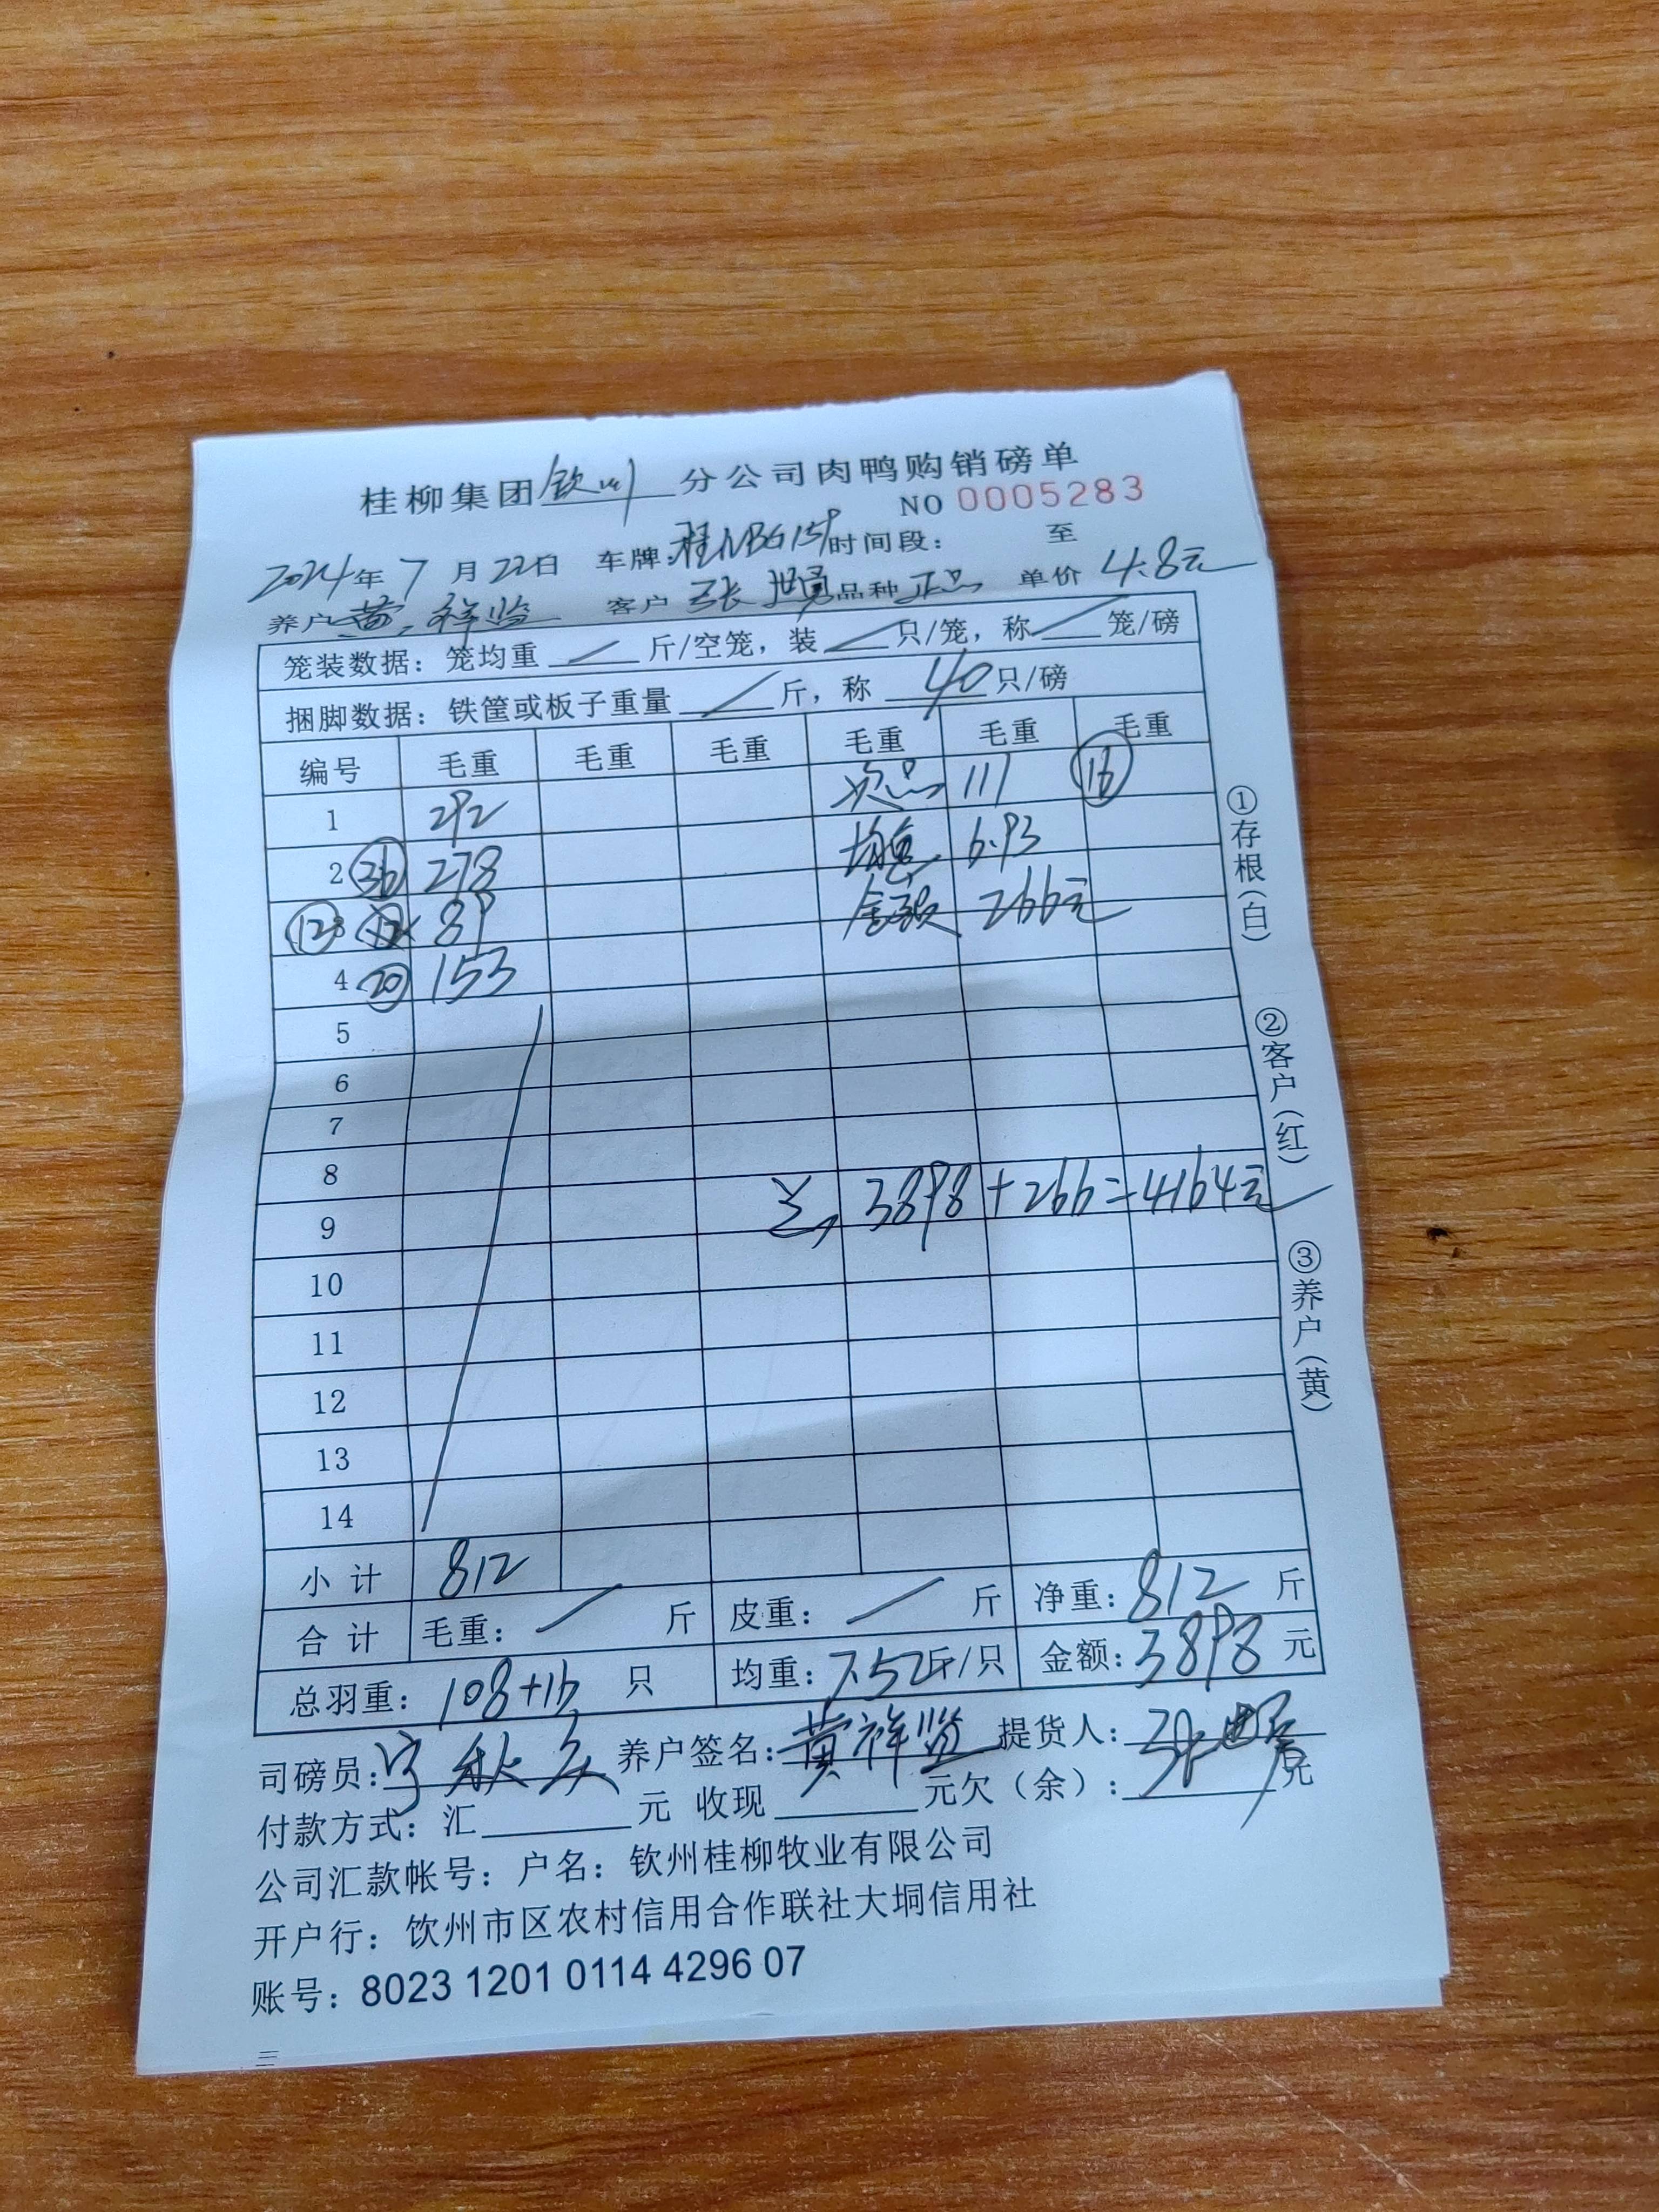 桂柳集团钦州分公司肉鸭购销磅单
NO 0005283
2024年7月22日 车牌:桂NBG159时间段: 至
养户黄祥监 客户张世勇品种正品 单价4.8元
笼装数据: 笼均重 / 斤/空笼, 装 / 只/笼, 称 / 笼/磅
捆脚数据: 铁筐或板子重量 / 斤, 称 40 只/磅
编号 毛重 毛重 毛重 毛重 毛重 毛重
1 292 次品 111 16
2 36 278 均重 6.93
3 12 89 金额 266元
4 20 153
5
6
7
8
9 3898+266=4164元
10
11
12
13
14
小计 812
合计 毛重: / 斤 皮重: / 斤 净重: 812 斤
总羽重: 108+16 只 均重: 7.52斤/只 金额: 3898 元
司磅员: 宁秋 养户签名: 黄祥监 提货人: 张世勇
付款方式: 汇 元 收现 元欠(余): 元
公司汇款帐号: 户名: 钦州桂柳牧业有限公司
开户行: 钦州市区农村信用合作联社大垌信用社
账号: 8023 1201 0114 4296 07
①存根(白)
②客户(红)
③养户(黄)